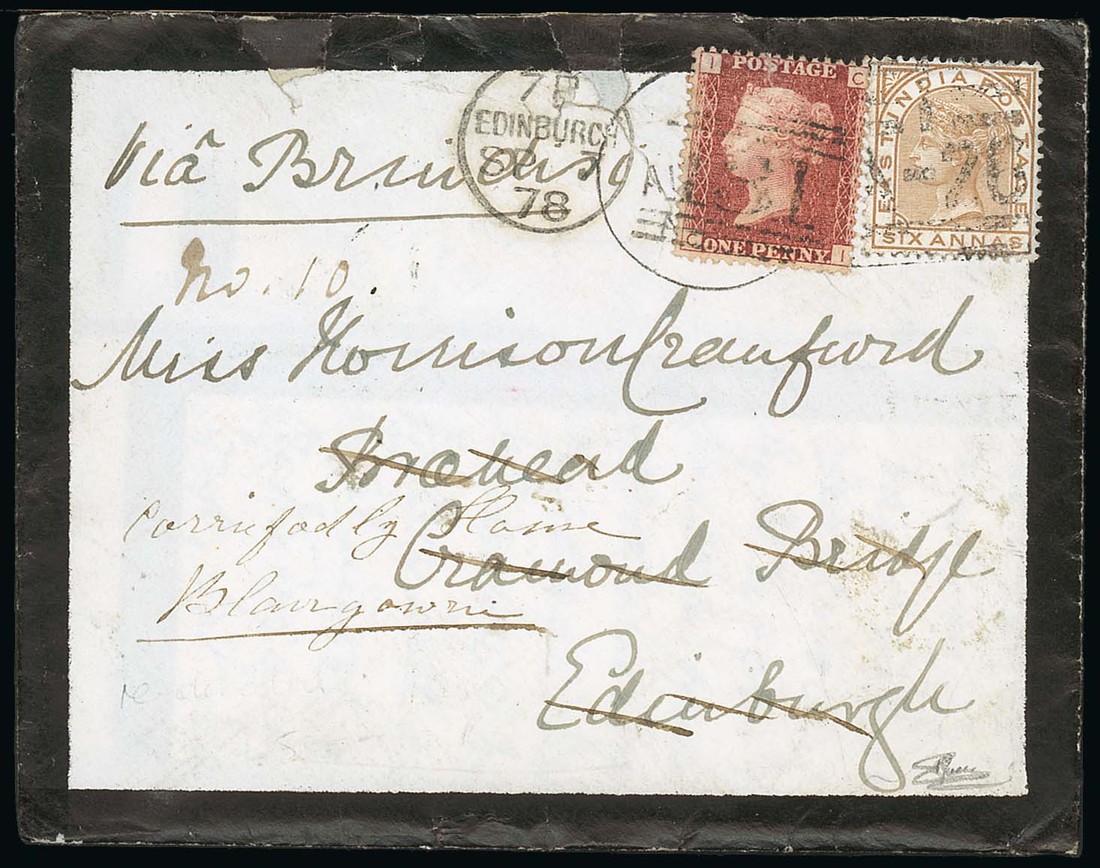 Viâ Brindisi
7 P
EDINBURGH
SP 7
78
I POSTAGE C
C ONE PENNY I
EAST INDIA POSTAGE
SIX ANNAS
No. 10.
Miss Morrison Craufurd
Braehead
Corriefodly House
Cramond Bridge
Blairgowrie
Edinburgh